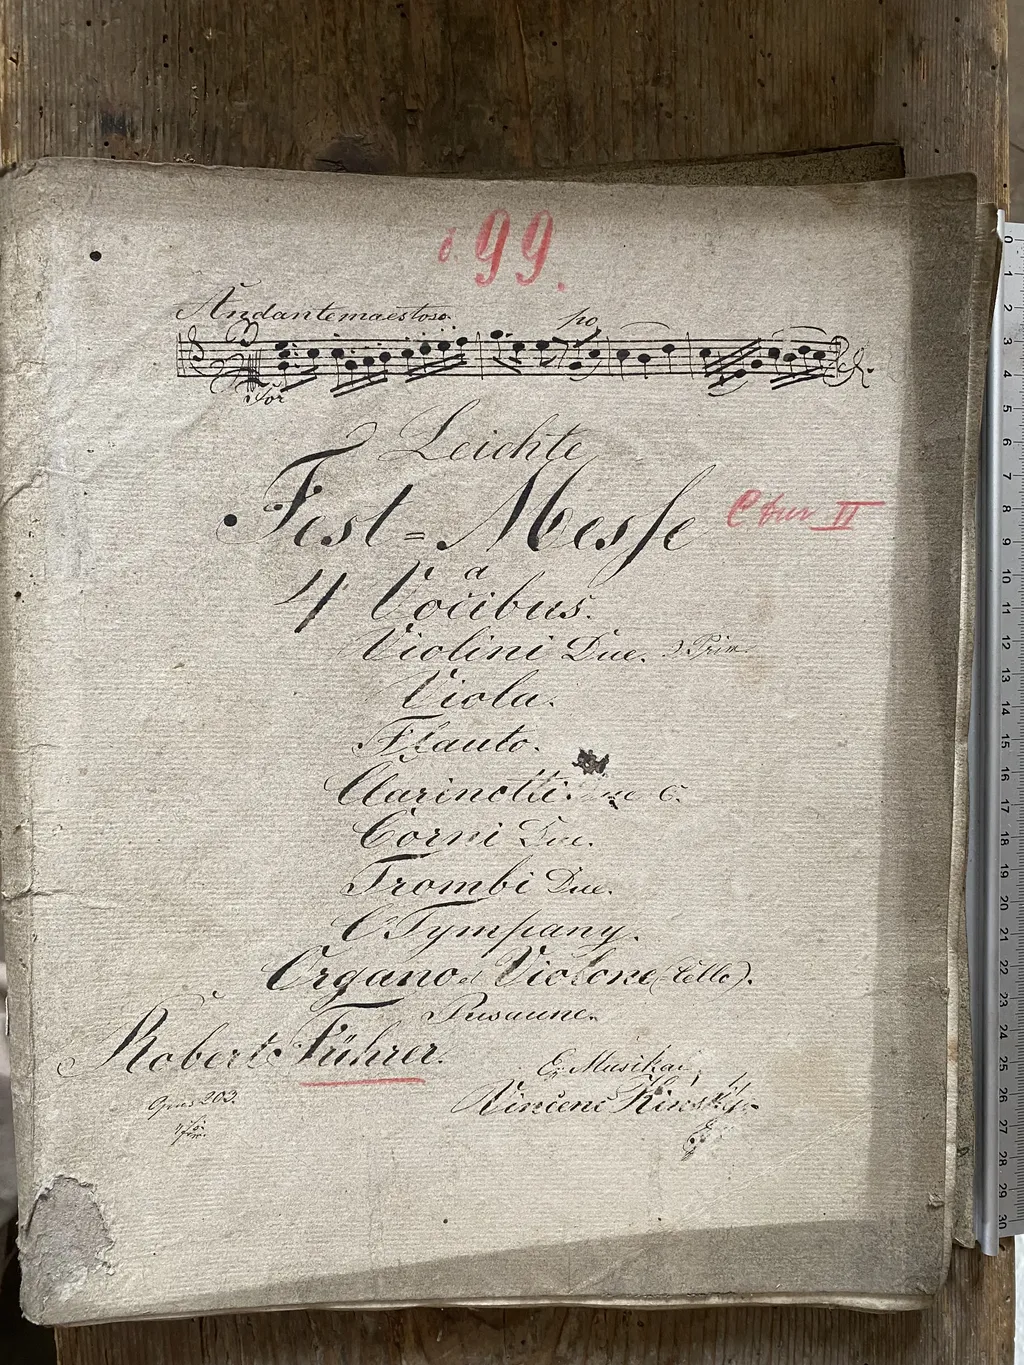 99.
Andante maestoso
po
for
Leichte
Fest=Messe
C dur II
a
4 Vocibus.
Violini Due. 2 Prim.
Viola.
Flauto.
Clarinetti. C.
Corni Due.
Trombi Due.
Tympany.
Organo et Violone (Cello).
Posaune.
Robert Führer.
Ex Musikal
Vincenc
Opus 203.
0 1 2 3 4 5 6 7 8 9 10 11 12 13 14 15 16 17 18 19 20 21 22 23 24 25 26 27 28 29 30